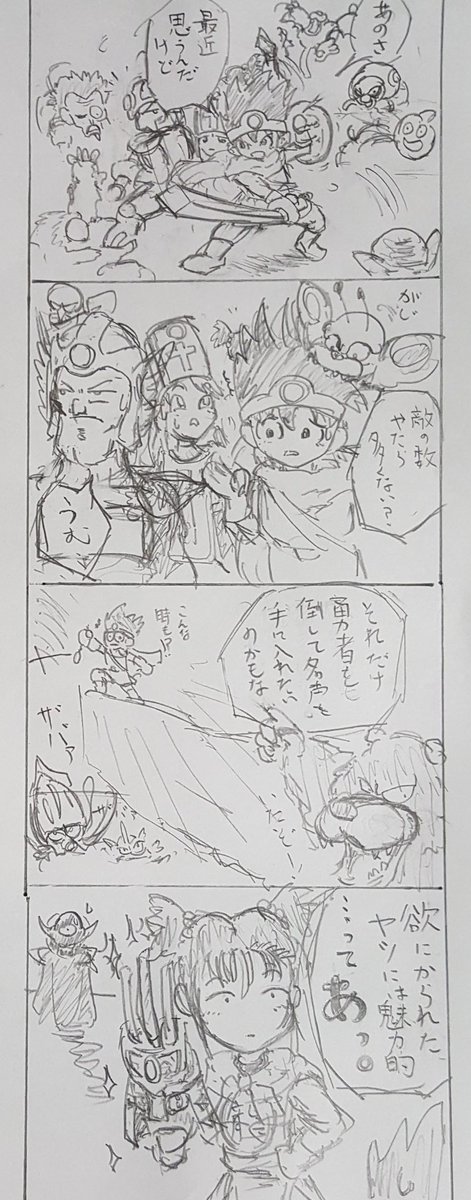 あのさ
最近
思うんだ
けど
がじ
敵の数
やたら
多くない？
うむ
それだけ
勇者を
倒して名声を
手に入れたい
のかもな
こんな
時も!?
ザバァ
ザ
だぞー！
欲にかられた
ヤツには魅力的
…って
あっ。